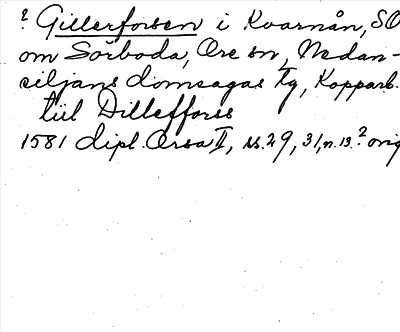 ? Gillerforsen i Kvarnån, SO
om Sörboda, Ore sn, Nedan-
siljans domsagas tg, Kopparb.
till Dillefforss
1581 dipl. Orsa II, ss. 29, 31, n. 13. ? orig